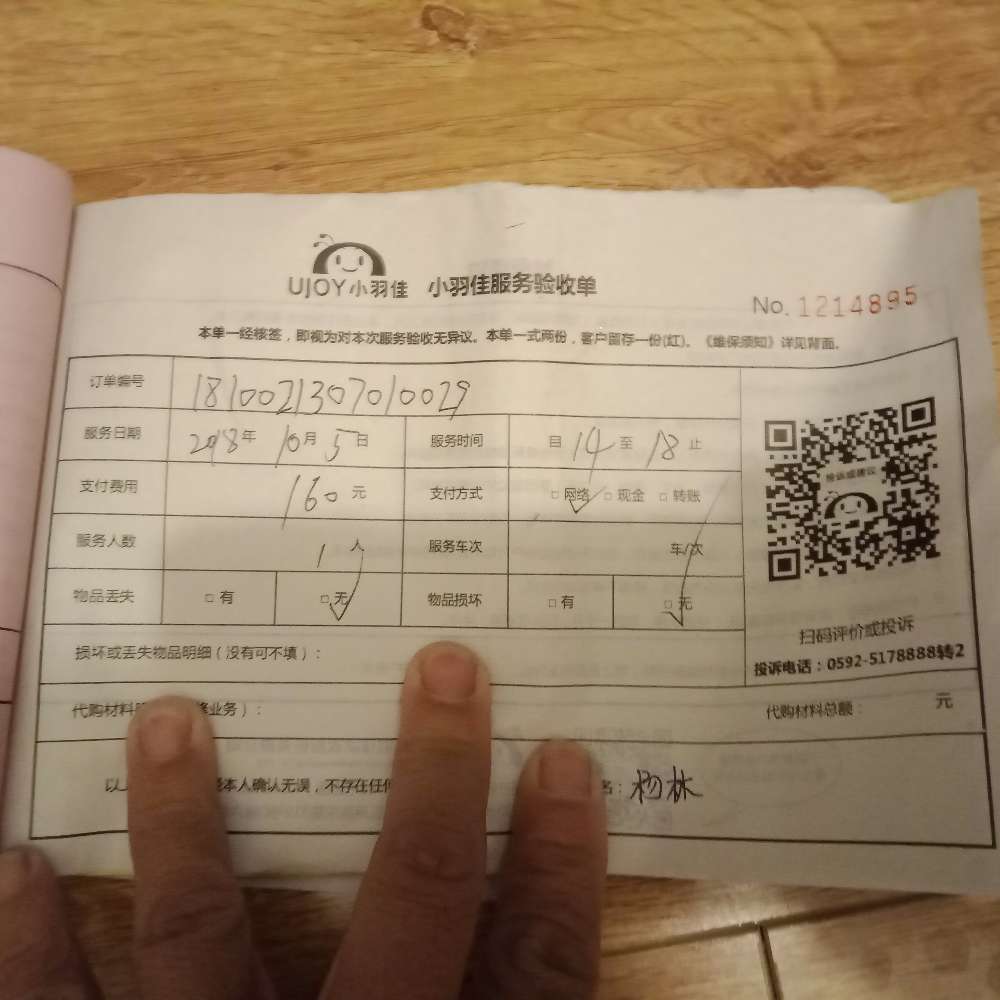 UJOY小羽佳 小羽佳服务验收单
No. 1214895
本单一经核签，即视为对本次服务验收无异议。本单一式两份，客户留存一份(红)。《维保须知》详见背面。
订单编号 1810021307010029
服务日期 2018年 10月 5日 服务时间 自 14 至 18 止
支付费用 160 元 支付方式 □ 网络 □ 现金 □ 转账
服务人数 1 人 服务车次 车/次
物品丢失 □ 有 □ 无 物品损坏 □ 有 □ 无
投诉或建议
扫码评价或投诉
投诉电话：0592-5178888转2
损坏或丢失物品明细（没有可不填）：
代购材料 业务）： 代购材料总额： 元
以 本人确认无误，不存在任何 名：杨林